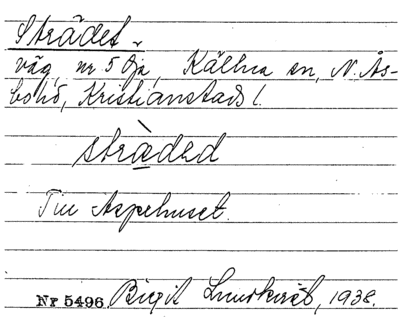 Strädet
väg, nr 5 Öja, Källna sn, N. Ås-
bo hd, Kristianstads l.
strὰded
Till Aspehuset.
Nr 5496. Birgit Lundkvist, 1938.